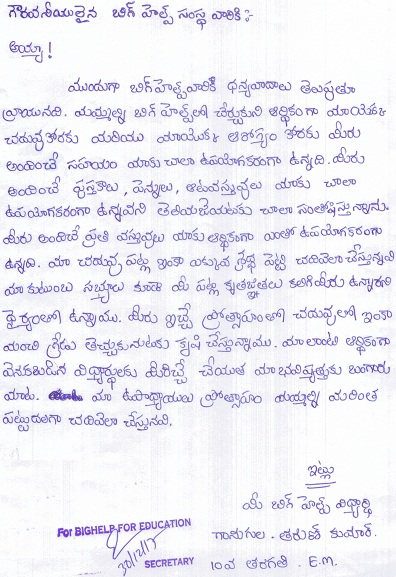 గౌరవనీయులైన బిగ్ హెల్ప్ సంస్థ వారికి :-
అయ్యా !
ముందుగా బిగ్ హెల్ప్ వారికి ధన్యవాదాలు తెలుపుతూ
వ్రాయునది. మమ్మల్ని బిగ్ హెల్ప్ లో చేర్చుకుని ఆర్థికంగా మాయొక్క
చదువు కొరకు మరియు మాయొక్క ఆరోగ్యం కొరకు మీరు
అందించే సహాయం మాకు చాలా ఉపయోగకరంగా ఉన్నది. మీరు
అందించే పుస్తకాలు, పెన్నులు, ఆటవస్తువులు మాకు చాలా
ఉపయోగకరంగా ఉన్నవని తెలియజేయుటకు చాలా సంతోషిస్తున్నాను.
మీరు అందించే ప్రతి వస్తువులు మాకు ఆర్థికంగా ఎంతో ఉపయోగకరంగా
ఉన్నది. మా చదువు పట్ల ఇంకా ఎక్కువ శ్రద్ధ పెట్టి చదివేలా చేస్తున్నవి
మా కుటుంబ సభ్యులు కూడా మీ పట్ల కృతజ్ఞతలు కలిగి మీరు ఉన్నారని
ధైర్యంలో ఉన్నాము. మీరు ఇచ్చే ప్రోత్సాహంతో చదువులో ఇంకా
మంచి గ్రేడు తెచ్చుకునుటకు కృషి చేస్తున్నాము. మాలాంటి ఆర్థికంగా
వెనకబడిన విద్యార్థులకు మీరిచ్చే చేయూత మా భవిష్యత్తుకు బంగారు
బాట. మా ఉపాధ్యాయులు ప్రోత్సాహం మమ్మల్ని మరింత
పట్టుదలగా చదివేలా చేస్తున్నది.
ఇట్లు
మీ బిగ్ హెల్ప్ విద్యార్థి
గానుగుల. తరుణ్ కుమార్.
10వ తరగతి. E.M.
For BIGHELP FOR EDUCATION
30/12/17
SECRETARY